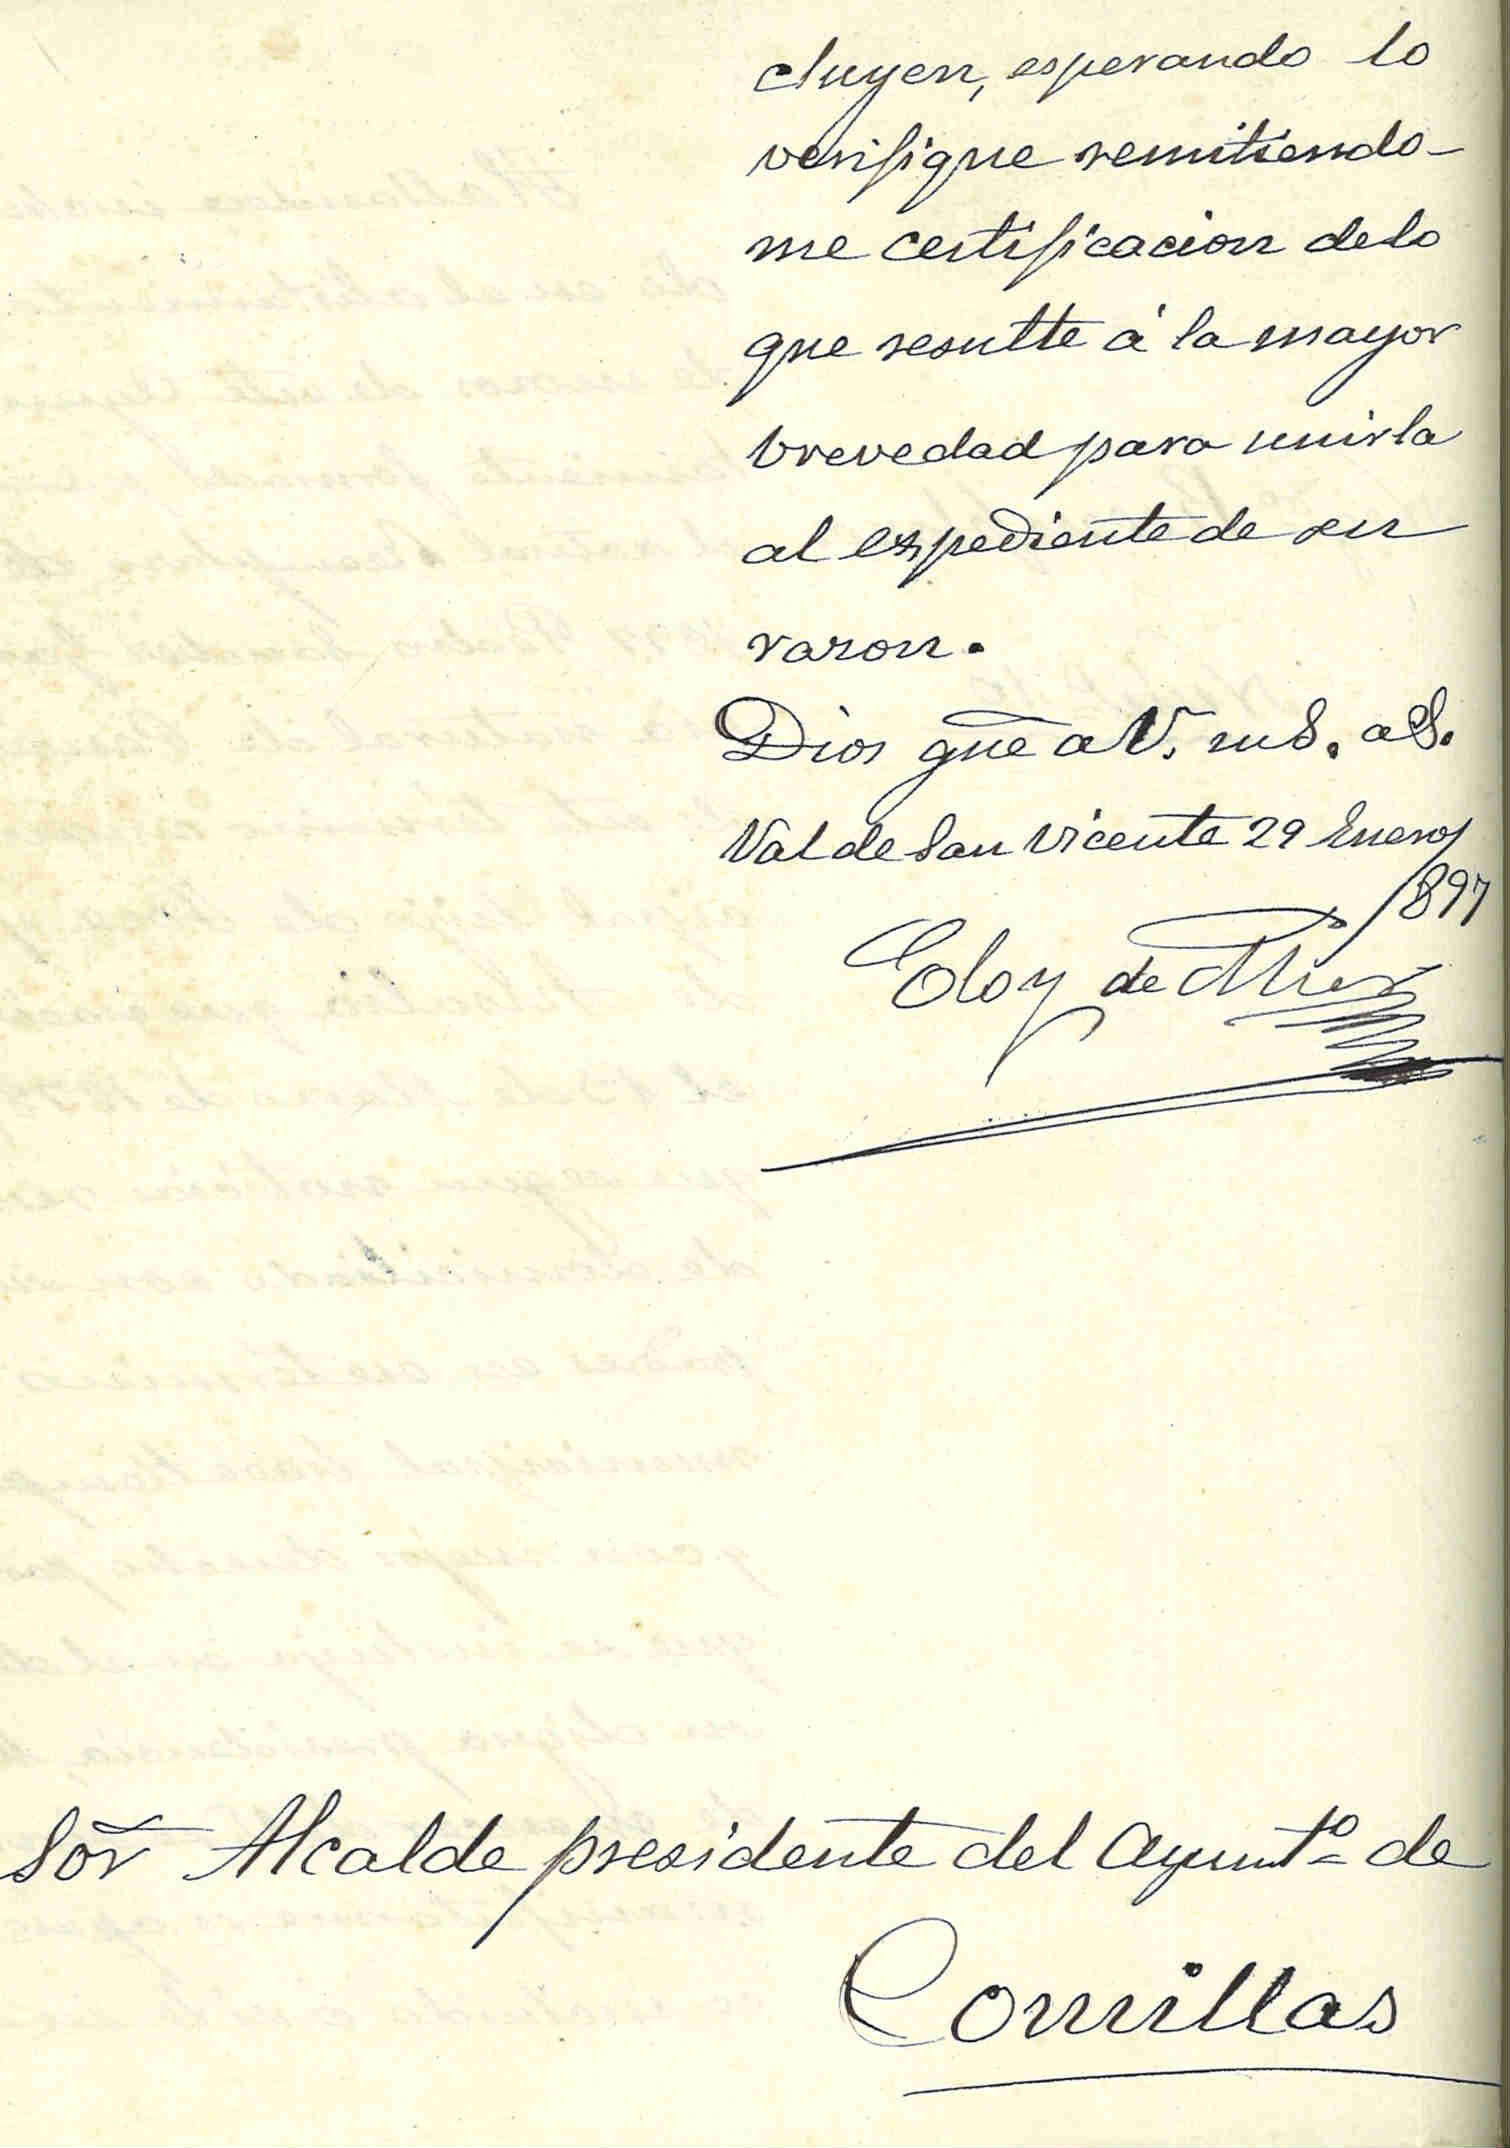 cluyen, esperando lo
verifique remitiendo-
me certificacion de lo
que resulte á la mayor
brevedad para unirla
al espediente de su
razon.
Dios gue a V. ms. as.
Val de San Vicente 29 Enero/
897
Eloy de Mier
Sor Alcalde presidente del Ayunto de
Comillas